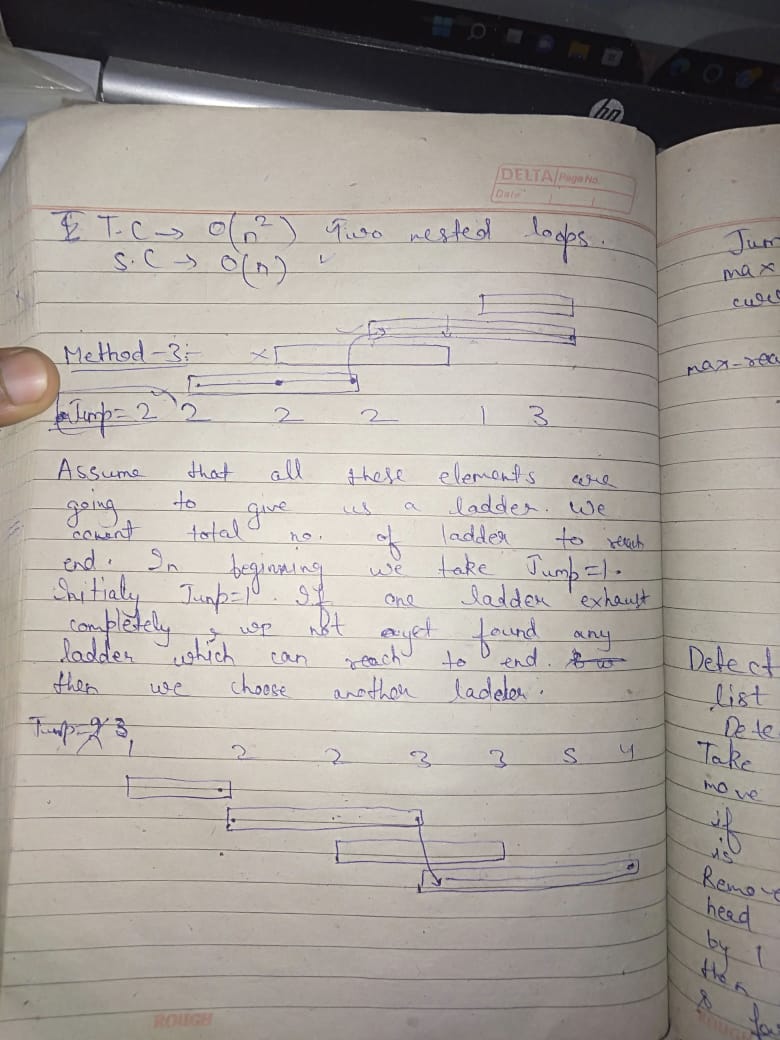 DELTA Page No.
Date
T.C → O(n²) Two nested loops.
S.C → O(n)
Method-3:-
Jump = 2 2 2 2 1 3
Assume that all these elements are
going to give us a ladder. We
count total no. of ladder to reach
end. In beginning we take Jump=1.
Initialy Jump=1. If one ladder exhaust
completely, we not yet found any
ladder which can reach to end.
then we choose another ladder.
Jump= 3
1 2 2 3 3 5 4
ROUGH
Jum
max
curr
max-rea
Detect
list
Dete
Take
move
if
is
Remove
head
by 1
then
& fa
ROUGH
hp